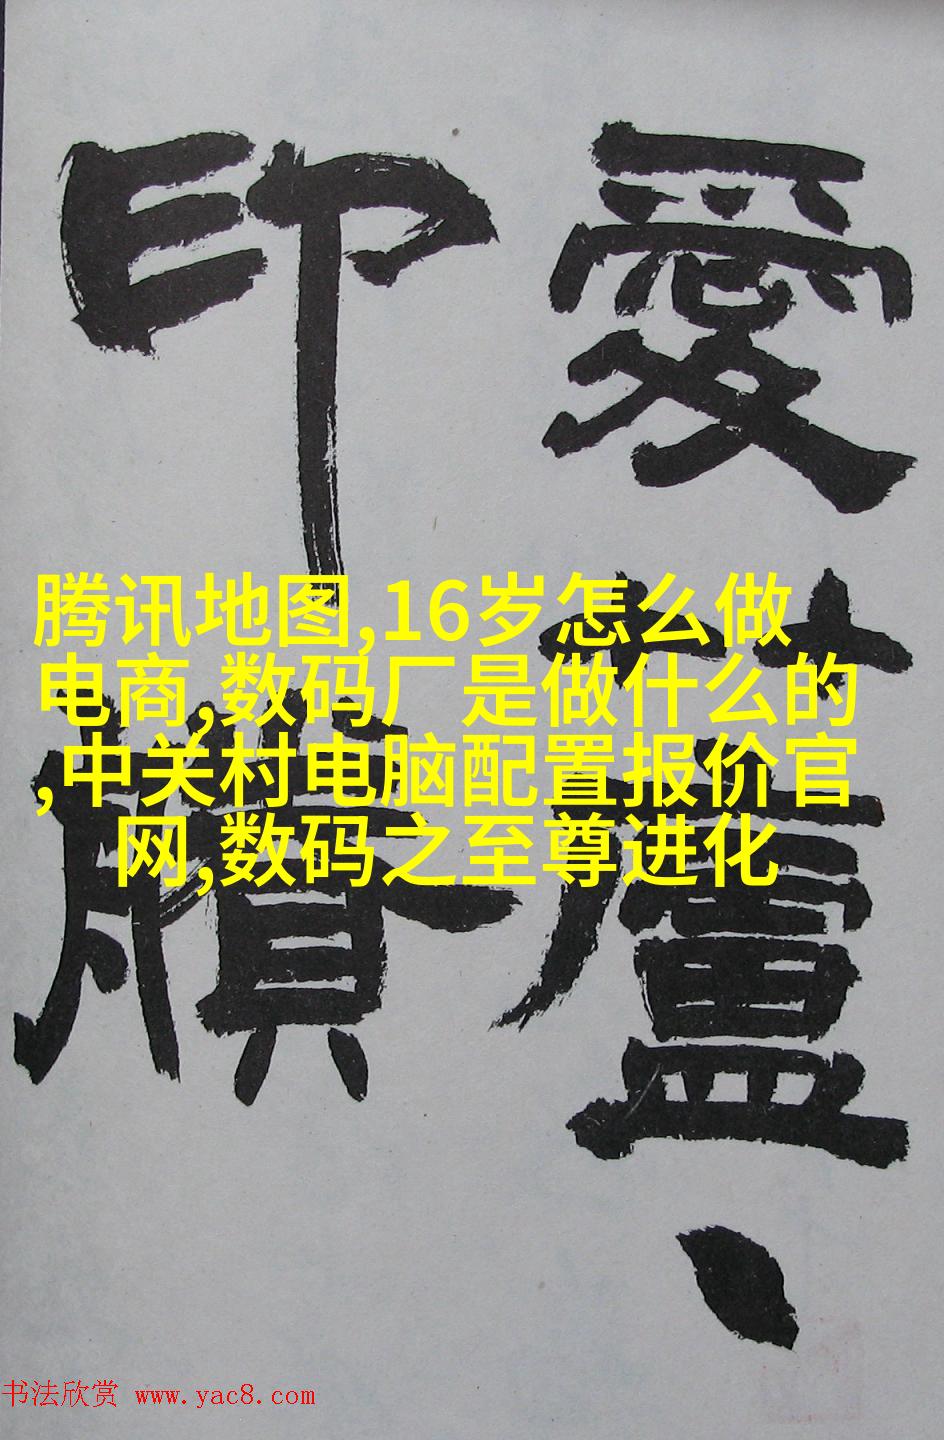 愛廬
印牘
腾讯地图,16岁怎么做
电商,数码厂是做什么的
,中关村电脑配置报价官
网,数码之至尊进化
书法欣赏 www.yac8.com